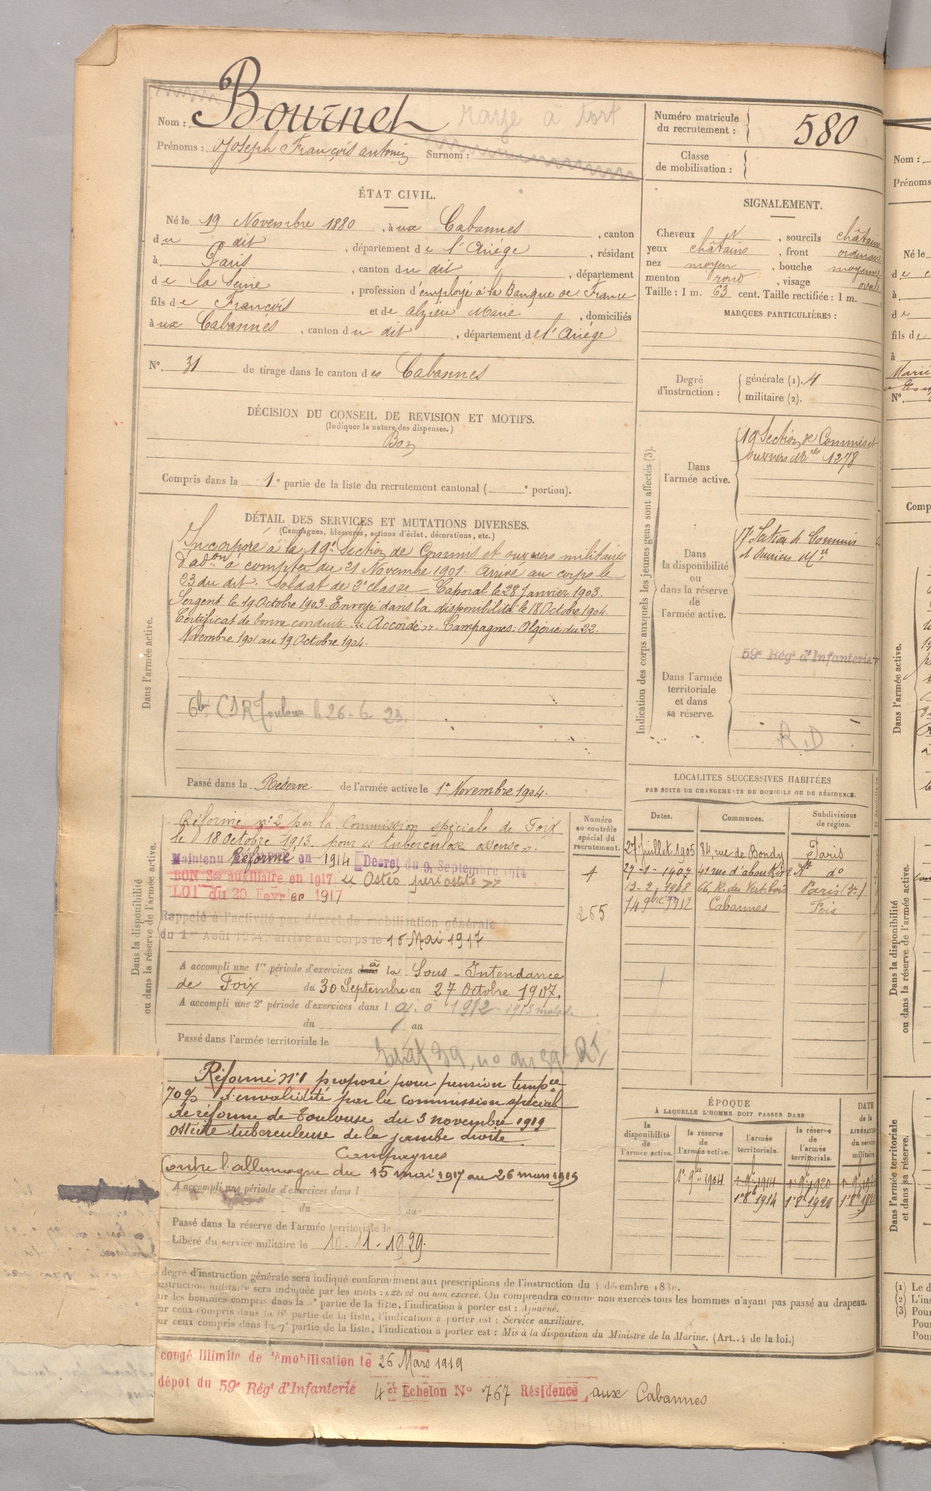 Nom : Bournet rayé à tort
Prénoms : Joseph François antonin Surnom :
Numéro matricule du recrutement : 580
Classe de mobilisation :
ÉTAT CIVIL.
Né le 19 Novembre 1880, à ux Cabannes, canton
du dit, département de l'Ariége, résidant
à Paris, canton du dit, département
de la Seine, profession d'employé à la Banque de France
fils de François et de alzieu Marie, domiciliés
à ux Cabannes, canton du dit, département de l'Ariége
N° 31 de tirage dans le canton des Cabannes
SIGNALEMENT.
Cheveux N, sourcils châtains
yeux châtains, front ordinaire
nez moyen, bouche moyenne
menton rond, visage ovale
Taille : 1 m. 63 cent. Taille rectifiée : 1 m.
MARQUES PARTICULIÈRES :
Degré d'instruction : générale (1). 4
militaire (2).
DÉCISION DU CONSEIL DE REVISION ET MOTIFS.
(Indiquer la nature des dispenses.)
Bon
Compris dans la 1e partie de la liste du recrutement cantonal ( e portion).
DÉTAIL DES SERVICES ET MUTATIONS DIVERSES.
(Campagnes, blessures, actions d'éclat, décorations, etc.)
Dans l'armée active.
Incorporé à la 19e Section de Commis et ouvriers militaires
d'adon à compter du 21 Novembre 1901. Arrivé au corps le
23 du dit. Soldat de 2e classe. Caporal le 28 Janvier 1903.
Sergent le 19 Octobre 1903. Envoyé dans la disponibilité le 18 Octobre 1904.
Certificat de bonne conduite « Accordé ». Campagnes : Algérie du 22
Novembre 1901 au 19 Octobre 1904.
CSR Toulouse le 26-6-23
Passé dans la Réserve de l'armée active le 1er Novembre 1904.
Indication des corps auxquels les jeunes gens sont affectés (3).
Dans l'armée active.
19e Section de Commis et
ouvriers Mres 1278
Dans la disponibilité ou dans la réserve de l'armée active.
17e Section de Commis
et Ouvriers Mres
59e Régt d'Infanterie
Dans l'armée territoriale et dans sa réserve.
R.D
LOCALITES SUCCESSIVES HABITÉES
PAR SUITE DE CHANGEMENTS DE DOMICILE OU DE RÉSIDENCE.
Dates. Communes. Subdivisions de région.
27 juillet 1905 84, rue de Bondy Paris
27-1-1907 41 rue d'aboukir do
13-2-1908 66 R. du Vertbois Paris
14 9bre 1912 Cabannes Foix
Numéro au contrôle spécial du recrutement.
4
265
Dans la disponibilité ou dans la réserve de l'armée active.
Réformé n° 2 par la Commission spéciale de Foix
le 18 Octobre 1913 pour « tuberculose osseuse ».
Maintenu Réformé en 1914 Décret du 9 Septembre 1914
BON Sce auxiliaire en 1917 « Ostéo périostite »
LOI du 20 Février 1917
Rappelé à l'activité par décret de mobilisation générale
du 1er Août 1914, arrivé au corps le 15 Mai 1917
A accompli une 1re période d'exercices à la Sous-Intendance
de Foix du 30 Septembre au 27 Octobre 1907.
A accompli une 2e période d'exercices dans l aj. à 1912 1913 malade
du au
Passé dans l'armée territoriale le
Réformé n°1 proposé pour pension tempre
70% d'invalidité par la Commission spéciale
de réforme de Toulouse du 3 novembre 1919
ostéite tuberculeuse de la jambe droite.
Campagnes
Contre l'allemagne du 15 mai 1917 au 26 mars 1919
A accompli une période d'exercices dans l
du au
Passé dans la réserve de l'armée territoriale le
Libéré du service militaire le 10-11-1929.
ÉPOQUE
À LAQUELLE L'HOMME DOIT PASSER DANS
la disponibilité de l'armée active.
la réserve de l'armée active.
l'armée territoriale.
la réserve de l'armée territoriale.
DATE de la LIBÉRATION du service militaire
1er 9bre 1904 1er 9bre 1914 1er 9bre 1920
1er 8bre 1914 1er 8bre 1920
degré d'instruction générale sera indiqué conformément aux prescriptions de l'instruction du 4 décembre 1889.
instruction militaire sera indiquée par les mots : exercé ou non exercé. On comprendra comme non exercés tous les hommes n'ayant pas passé au drapeau.
ur les hommes compris dans la partie de la liste, l'indication à porter est : Ajourné.
ur ceux compris dans la 6e partie de la liste, l'indication à porter est : Service auxiliaire.
ur ceux compris dans la 7e partie de la liste, l'indication à porter est : Mis à la disposition du Ministre de la Marine. (Art. 4 de la loi.)
congé illimité de démobilisation le 26 Mars 1919
dépôt du 59e Régt d'Infanterie 4er Echelon N° 767 Résidence aux Cabannes
Nom :
Prénoms
Né le
fils de
N°
Dans l'armée active.
Dans la disponibilité ou dans la réserve de l'armée active.
Dans l'armée territoriale et dans sa réserve.
(1) Le d
(2) L'ins
(3) Pour
Pour
Pour